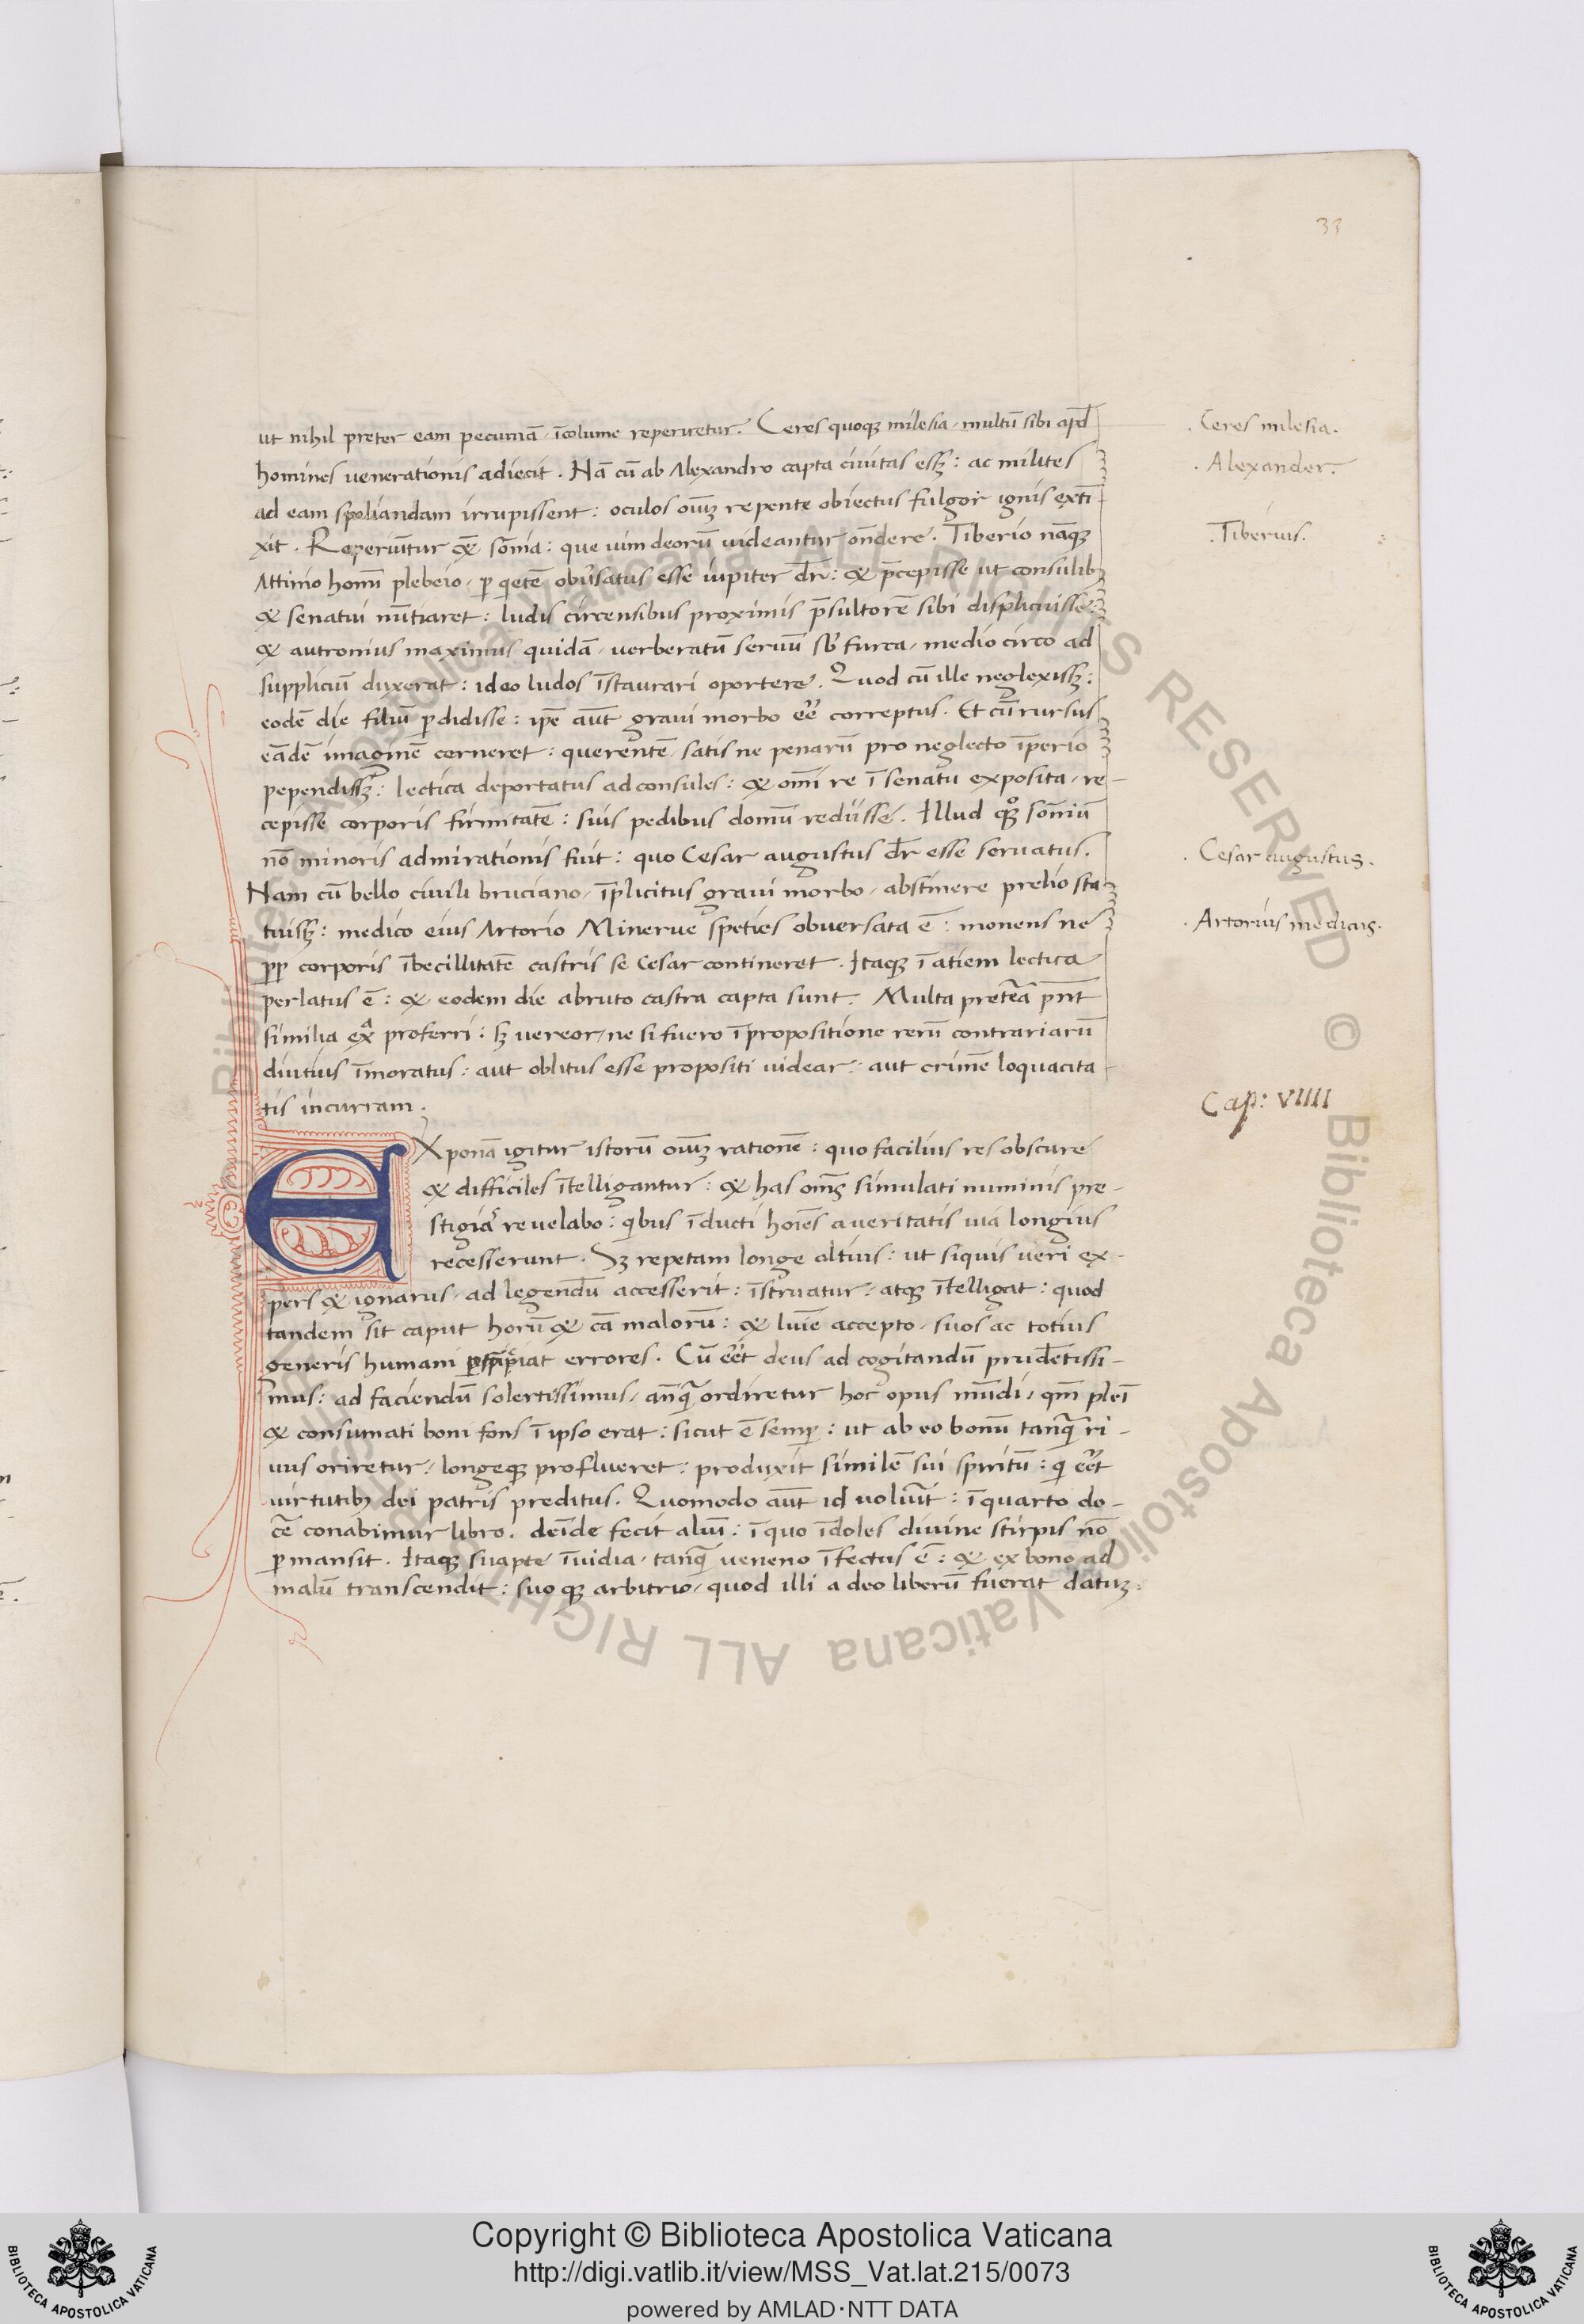 33
ut nihil preter eam pecuniā, īcolume reperiretur. Ceres quoqꝫ milesia, multū sibi apd
homines venerationis adiecit. Nā cū ab Alexandro capta civitas essꝫ: ac milites
ad eam spoliandam irrupissent: oculos oīuꝫ repente obiectus fulgor ignis extī-
xit. Reperiūtur &̄ sōmia: que vim deorū videantur oñdere. Tiberio nāqꝫ
Attinio homī plebeio, p̱ q̇etē obv̄satus esse iupiter dr̄: & p̄cepisse ut consulibꝫ
& senatui nūtiaret: ludis circensibus proximis p̄sultorē sibi displicuisse:
& autronius maximus quidā, verberatū servū sb̄ furca, medio circo ad
suppliciū duxerat: ideo ludos īstaurari oportere. Quod cū ille neglexissꝫ:
eodē die filiū p̱didisse: ipē aūt gravi morbo eē correptus. Et cū rursus
eādē imaginē cerneret: querentē, satis ne penarū pro neglecto īperio
pependissꝫ: lectica deportatus ad consules: & omī re ī senatu exposita, re-
cepisse corporis firmitatē: suis pedibus domū rediisse. Illud qꝫ sōmiū
nō minoris admirationis fuit: quo Cesar augustus dr̄ esse servatus.
Nam cū bello civili bruciano, īplicitus gravi morbo, abstinere prelio sta-
tuisꝫ: medico eius Artorio Minerve speties obversata ē: monens ne
pp̱ corporis ībecillitatē castris se Cesar contineret. Itaqꝫ ī atiem lectica
perlatus ē: & eodem die abruto castra capta sunt. Multa pretea pn̄t
similia exᵃ proferri: sꝫ vereor, ne si fuero ī propositione rerū contrariarū
diutius īmoratus: aut oblitus esse propositi videar: aut crimē loquacita-
tis incurram.
EXponā igitur istorū oīuꝫ rationē: quo facilius res obscure
& difficiles ītelligantur: & has om̄s simulati numinis pre-
stigiaˢ revelabo: q̇bus īducti hoīes a veritatis via longius
recesserunt. Sꝫ repetam longe altius: ut siquis veri ex-
pers & ignarus, ad legendū accesserit: īstruatur: atqꝫ ītelligat: quod
tandem sit caput horū & cā malorū: & luīe accepto, suos ac totius
generis humani p̱spiciat errores. Cū eēt deus ad cogitandū prudētissi-
mus: ad faciendū solertissimus, anq̄ ordiretur hoc opus mūdi, qm̄ pleī
& consumati boni fons ī ipso erat: sicut ē semp̱: ut ab eo bonū tanq̄ ri-
vus oriretur, longeqꝫ proflueret: produxit similē sui spiritū: q̇ eēt
virtutibꝫ dei patris preditus. Quomodo aūt id voluīt: ī quarto do-
cē conabimur libro. deīde fecit aliū: ī quo īdoles divine stirpis nō
p̱mansit. Itaqꝫ suapte īvidia, tanq̄ veneno īfectus ē: & ex bono ad
malū transcendit: suo qꝫ arbitrio, quod illi a deo liberū fuerat datuꝫ:
. Ceres milesia.
. Alexander.
. Tiberius.
. Cesar augustus.
. Artorius medicus.
Cap: VIIII
© Biblioteca Apostolica Vaticana ALL RIGHTS RESERVED © Biblioteca Apostolica Vaticana ALL RIGHTS
Copyright © Biblioteca Apostolica Vaticana
http://digi.vatlib.it/view/MSS_Vat.lat.215/0073
powered by AMLAD·NTT DATA
BIBLIOTECA APOSTOLICA VATICANA
BIBLIOTECA APOSTOLICA VATICANA